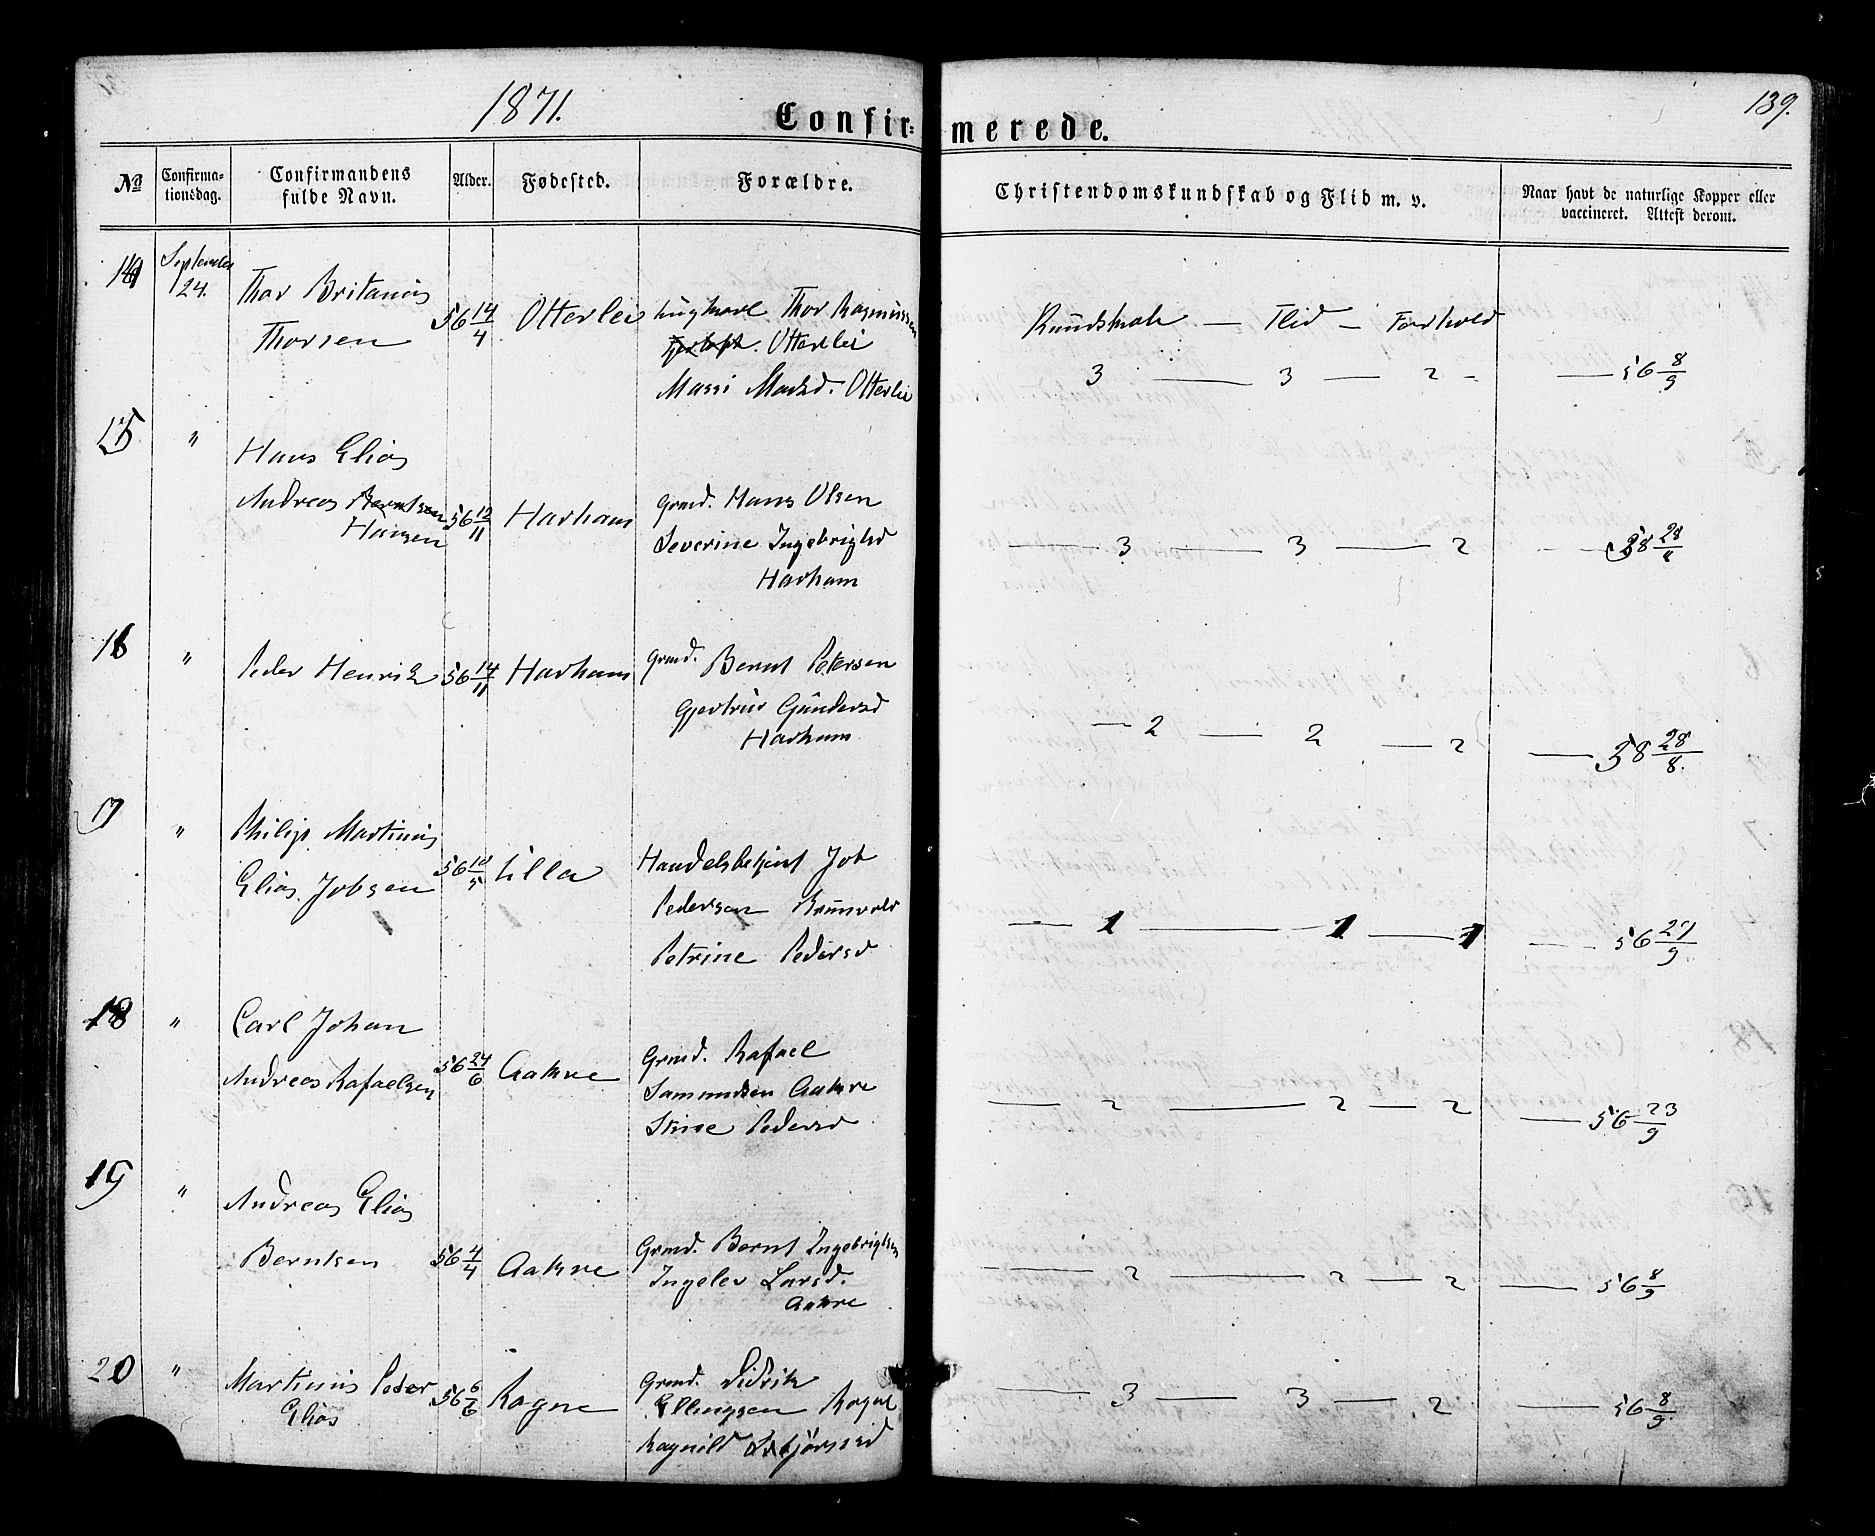 1871.
Confir-merede.
139.
No
Confirma-
tionsdag.
Confirmandens
fulde Navn.
Alder.
Fødested.
Forældre.
Christendomskundskab og Flid m. v.
Naar havt de naturlige Kopper eller
vaccineret. Attest derom.
14 September 24. Thor Britanius
Thorsen
56 14/4 Otterlei
Thor Rasmussen
Otterlei
Massi Madsd. Otterlei
Kundskab — Flid — Forhold
3 — 3 — 2 — 56 8/9
15 " Hans Elias
Andreas Berntsen
Hansen
56 12/11 Harham
Grmd. Hans Olsen
Severine Ingebrigtsd
Harham
— 3 — 3 — 2 — 58 28/8
16 " Peder Henrik 56 14/11 Harham
Grmd. Bernt Petersen
Gjertrud Gundersd
Harham
— 2 — 2 — 2 — 58 28/8.
17 " Philip Martinus
Elias Jobsen
56 10/5 Ulla
Handelsbetjent Job
Pedersen Brunvold
Petrine Pedersd
— 1 — 1 — 1 — 56 27/9
18 " Carl Johan
Andreas Rafaelsen
56 24/6 Aakre
Grmd. Rafael
Samundsen Aakre
Stine Pedersd
— 2 — 2 — 2 — 56 23/9
19 " Andreas Elias
Berntsen
56 4/4 Aakre
Grmd. Bernt Ingebrigtsen
Ingelev Larsd.
Aakre
— 2 — 2 — 2 — 56 8/9
20 " Martinus Peder
Elias
56 6/6 Rogne
Grmd. Didrik
Ellingsen Rogne
Ragnild
— 3 — 3 — 2 — 56 8/9.